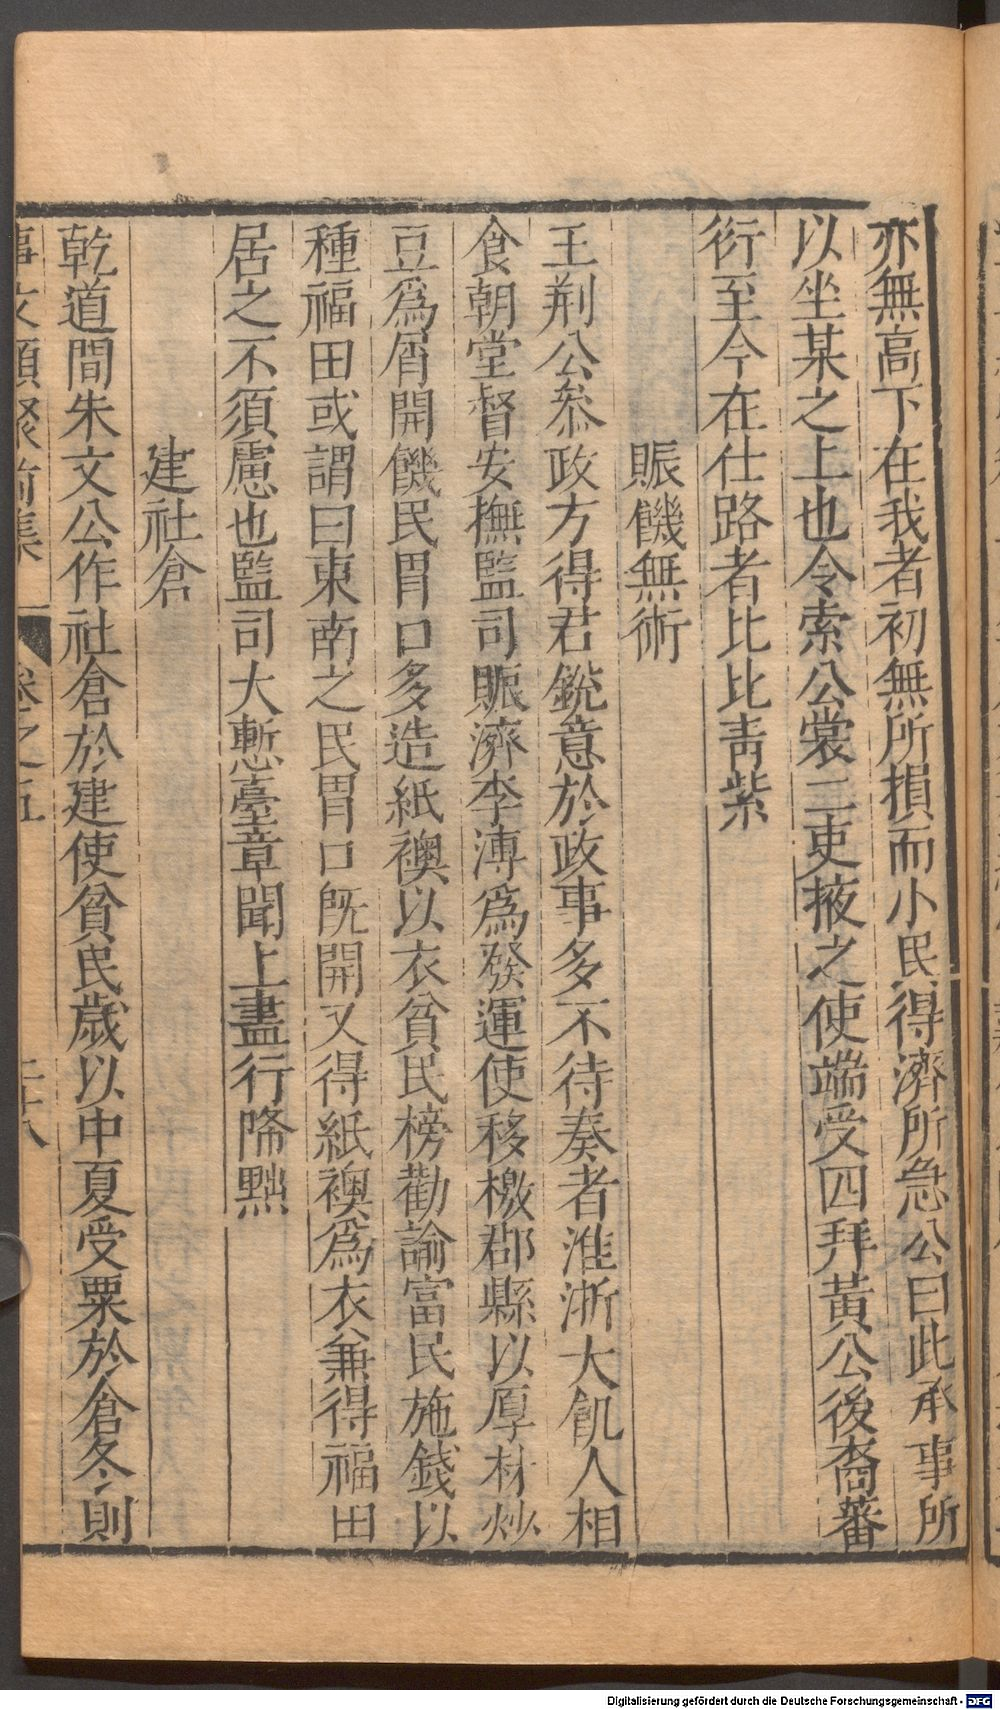 亦無高下在我者初無所損而小民得濟所急公曰此承事所
以坐某之上也令索公裳二吏掖之使端受四拜黃公後裔蕃
衍至今在仕路者比比靑紫
賑饑無術
王荆公叅政方得君銳意於政事多不待奏者淮浙大飢人相
食朝堂督安撫監司賑濟李溥爲發運使移檄郡縣以厚材炒
豆爲屑開饑民胃口多造紙襖以衣貧民榜勸諭富民施錢以
種福田或謂曰東南之民胃口旣開又得紙襖爲衣兼得福田
居之不須慮也監司大慙臺章聞上盡行降黜
建社倉
乾道間朱文公作社倉於建使貧民歲以中夏受粟於倉冬則
事文類聚前集 卷之五 二十八
Digitalisierung gefördert durch die Deutsche Forschungsgemeinschaft - DFG